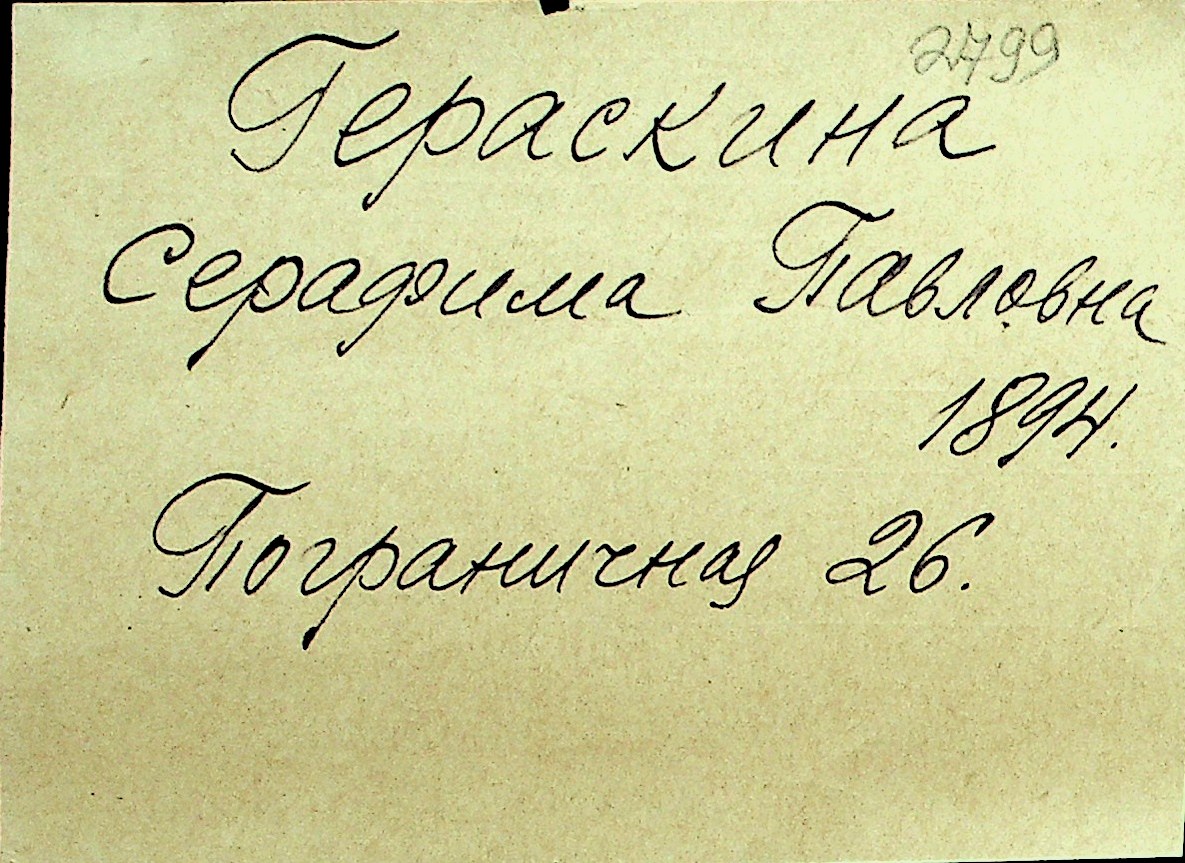 2799
Гераскина
Серафима Павловна
1894.
Пограничная 26.